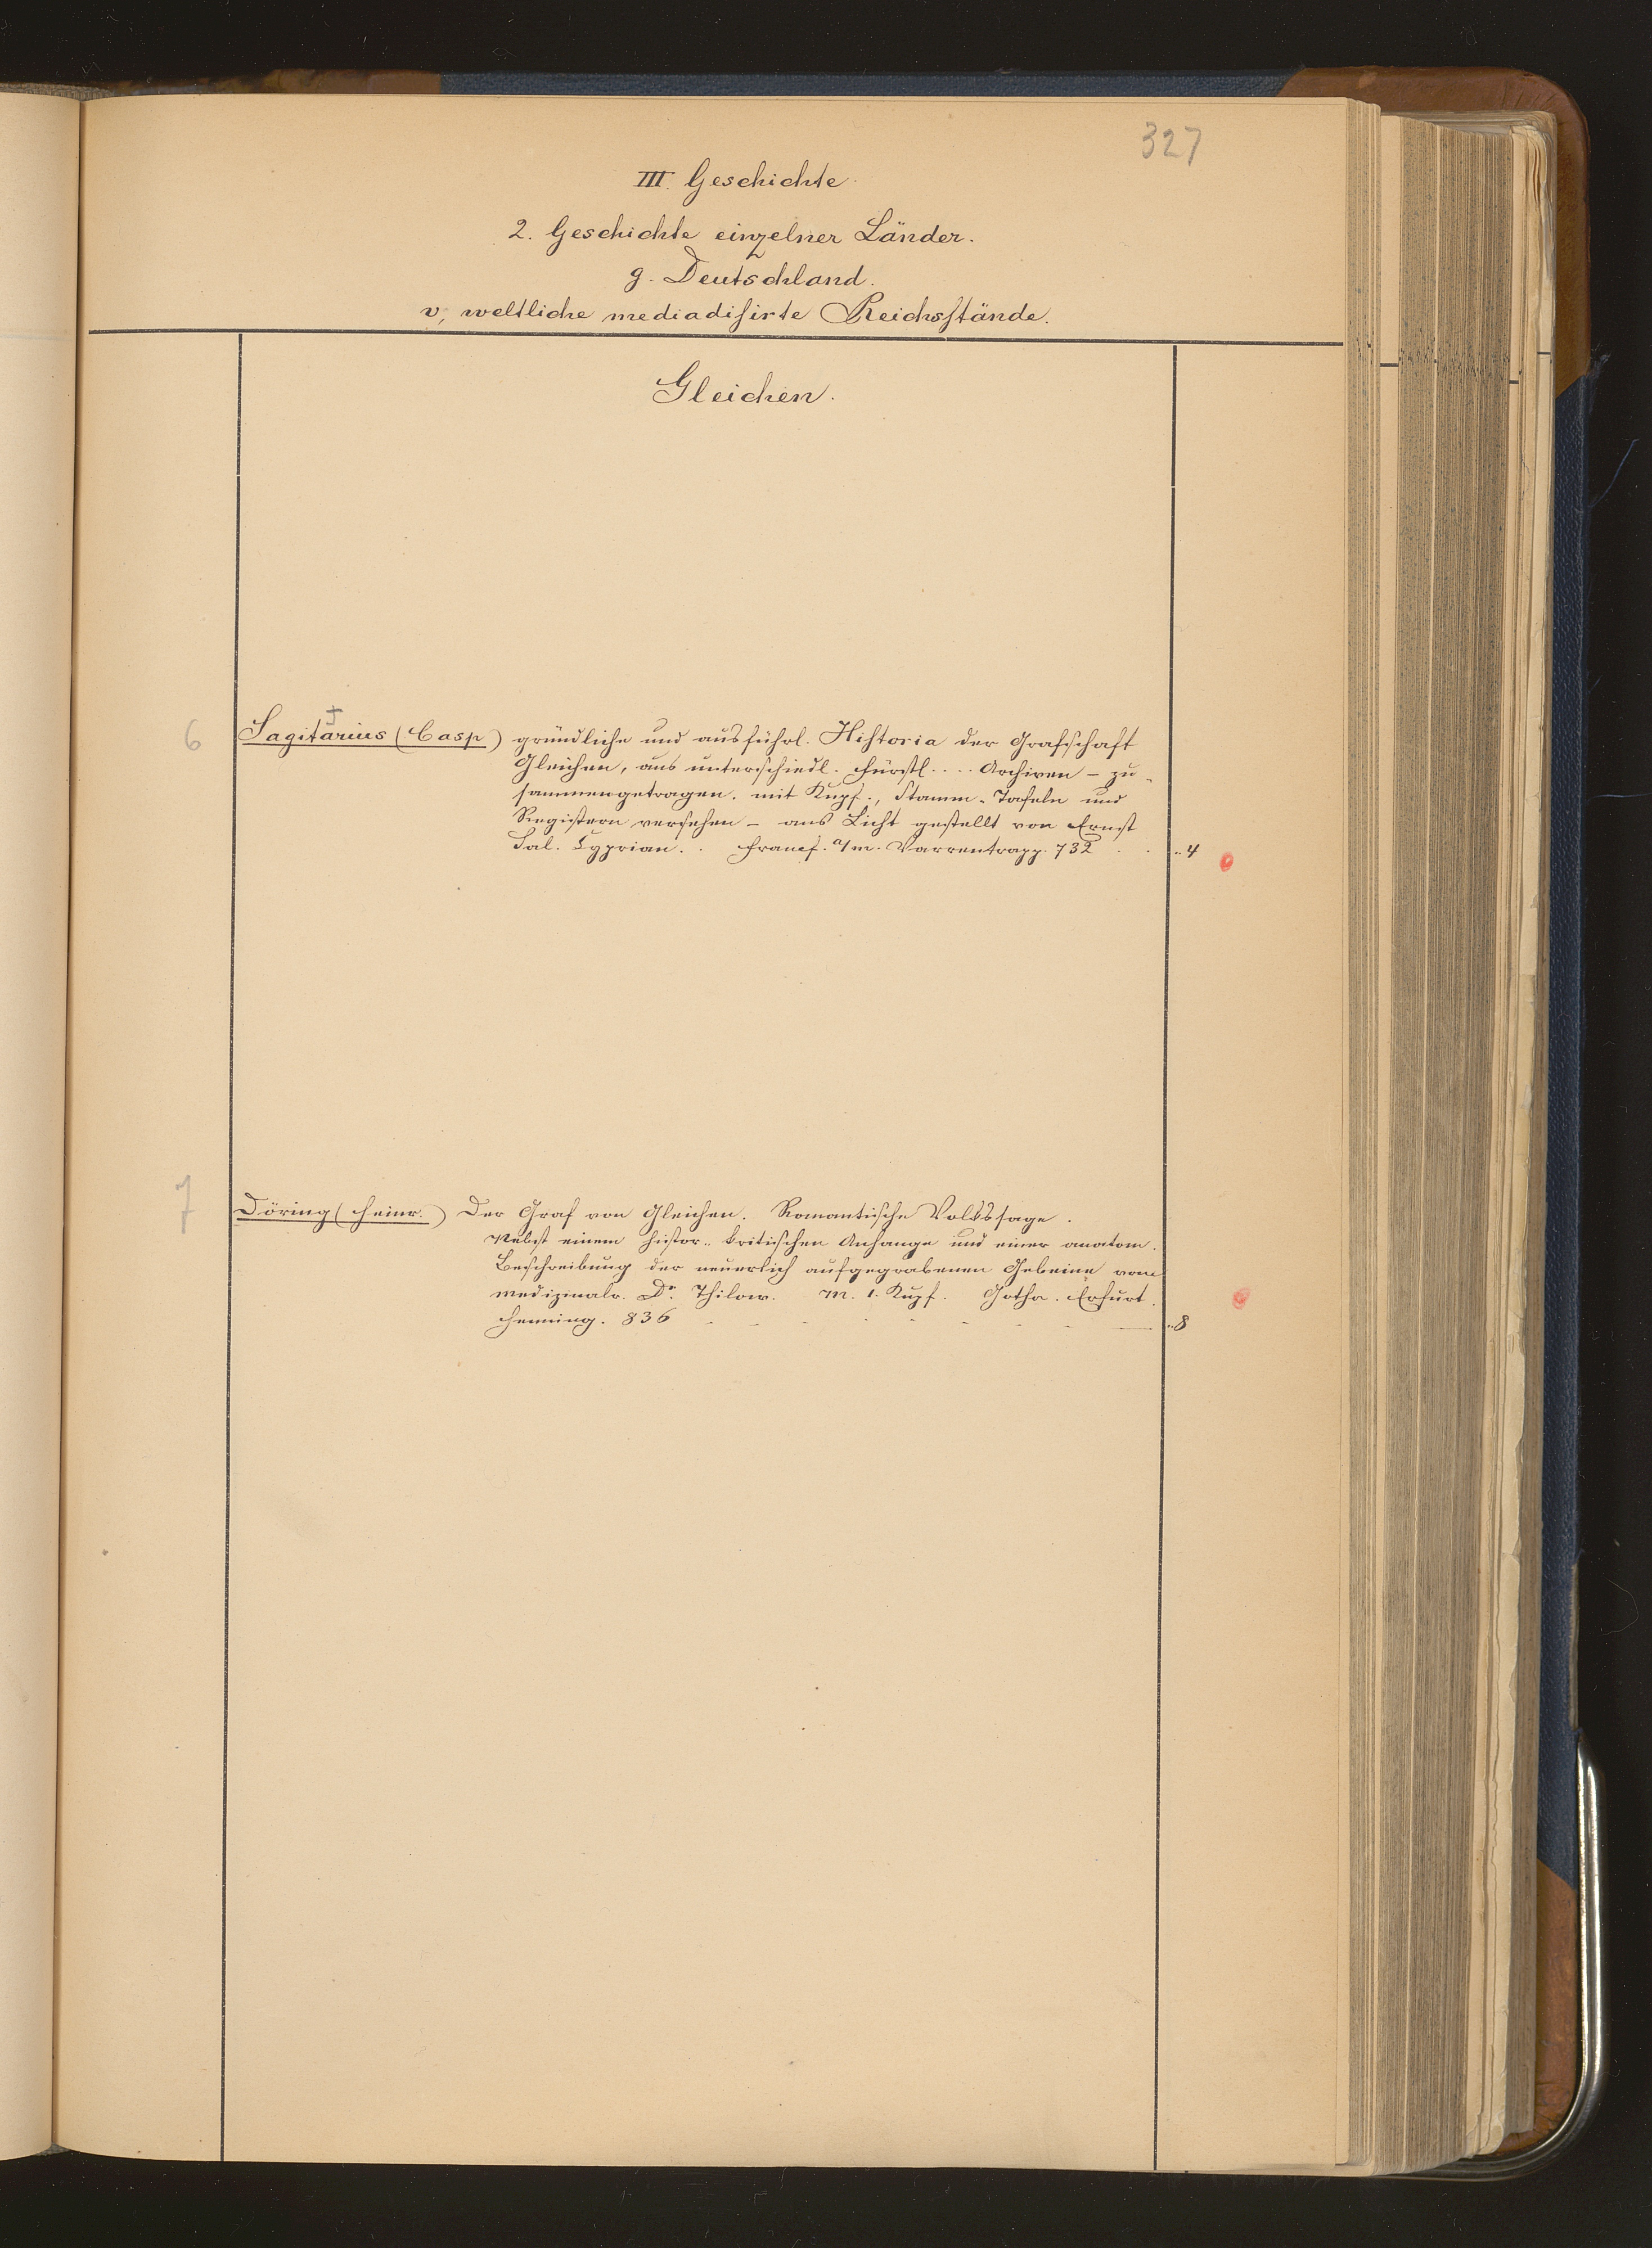 327
III. Geschichte.
2. Geschichte einzelner Länder.
g. Deutschland.
v, weltliche mediadisirte Reichsstände.
Gleichen.
6 Sagitarius (Casp) gründliche und ausführl. Historia der Grafschaft
t
Gleichen, aus unterschiedl. Fürstl. ... Archiven - zu-
sammengetragen. mit Kupf., Stamm-Tafeln und
Registern versehen - ans Licht gestellt von Ernst
Sal. Cyprian. . Francf. a/m. Varrentrapp. 732 . . "4
7 Döring (Heinr.) Der Graf von Gleichen. Romantische Volkssage.
Nebst einem histor.- kritischen Anhange und einer anatom.
Beschreibung der neuerlich aufgegrabenen Gebeine vom
Medizinalr. Dr. Thilow. M. 1. Kupf. Gotha. Erfurt.
Henning. 836 - - - - - - - - "8